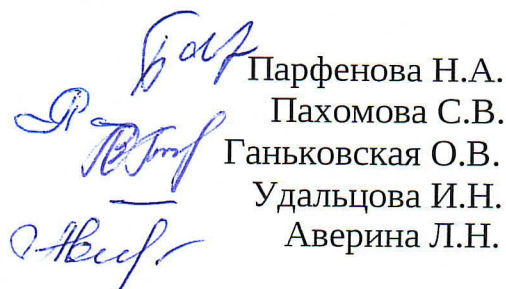 Парфенова Н.А.
Пахомова С.В.
Ганьковская О.В.
Удальцова И.Н.
Аверина Л.Н.